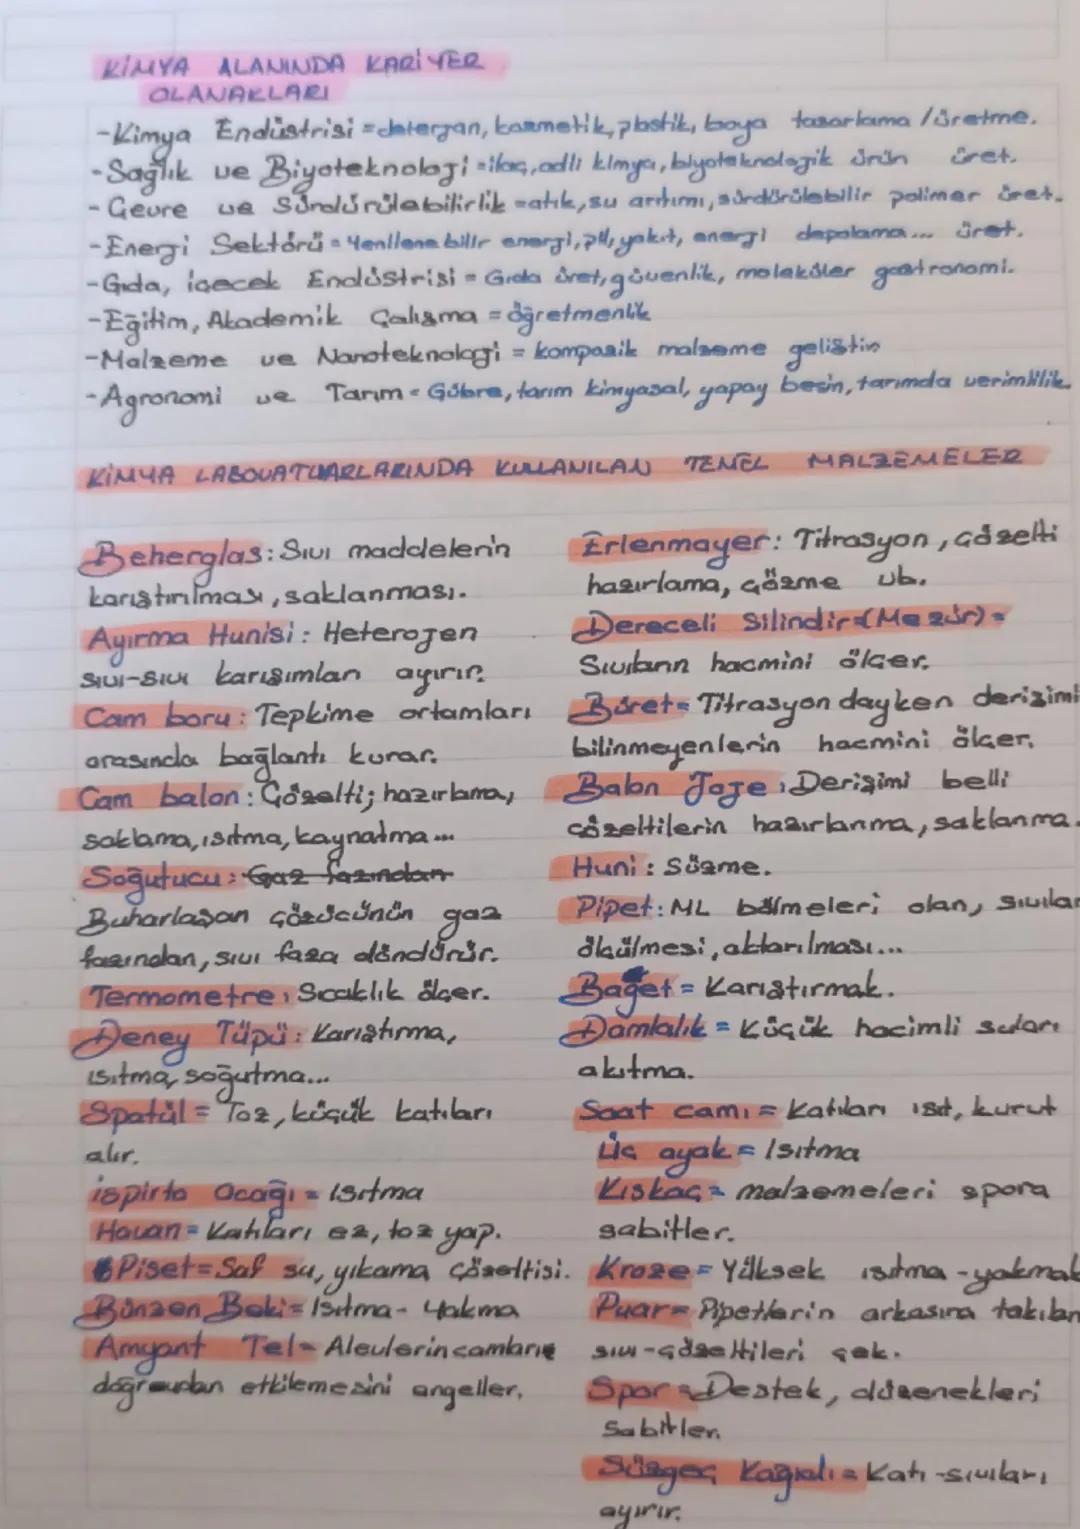 KİMYA ALANINDA KARİYER
OLANAKLARI
-Kimya Endüstrisi = deterjan, kozmetik, plastik, boya tasarlama / üretme.
-Sağlık ve Biyoteknoloji = ilaç, adli kimya, biyoteknolojik ürün üret.
-Çevre ve Sürdürülebilirlik = atık, su arıtımı, sürdürülebilir polimer üret.
-Enerji Sektörü = Yenilenebilir enerji, pil, yakıt, enerji depolama... üret.
-Gıda, içecek Endüstrisi = Gıda üret, güvenlik, moleküler gastronomi.
-Eğitim, Akademik Çalışma = öğretmenlik
-Malzeme ve Nanoteknoloji = kompozik malzeme geliştir
-Agronomi ve Tarım = Gübre, tarım kimyasal, yapay besin, tarımda verimlilik.
KİMYA LABOVATUARLARINDA KULLANILAN TEMEL MALZEMELER
Beherglas: Sıvı maddelerin
karıştırılması, saklanması.
Ayırma Hunisi: Heterojen
sıvı-sıvı karışımları ayırır.
Cam boru: Tepkime ortamları
arasında bağlantı kurar.
Cam balon: Çözelti; hazırlama,
saklama, ısıtma, kaynatma...
Soğutucu: Gaz fazından
Buharlaşan çözücünün gaz
fazından, sıvı faza döndürür.
Termometre: Sıcaklık ölçer.
Deney Tüpü: Karıştırma,
ısıtma, soğutma...
Spatül = Toz, küçük katıları
alır.
ispirto Ocağı = Isıtma
Havan = Katıları ez, toz yap.
Piset = Saf su, yıkama çözeltisi.
Bünzen Beki = Isıtma - Yakma
Amyant Tel = Alevlerin camları
doğrudan etkilemesini engeller.
Erlenmayer: Titrasyon, çözelti
hazırlama, çözme vb.
Dereceli Silindir=(Mezür)=
Sıvıların hacmini ölçer.
Büret= Titrasyon dayken derişimi
bilinmeyenlerin hacmini ölçer.
Balon Joje: Derişimi belli
çözeltilerin hazırlanma, saklanma.
Huni: Süzme.
Pipet: ML bölmeleri olan, sıvılar
ölçülmesi, aktarılması...
Baget = Karıştırmak.
Damlalık = Küçük hacimli suları
akıtma.
Saat camı = Katıları ısıt, kurut
Üç ayak = Isıtma
Kıskaç = malzemeleri spora
sabitler.
Kroze = Yüksek ısıtma - yakmak
Puar = Pipetlerin arkasına takılan
sıvı-çözeltileri çek.
Spor = Destek, düzenekleri
sabitler.
Süzgeç Kağıdı = Katı-sıvıları
ayırır.